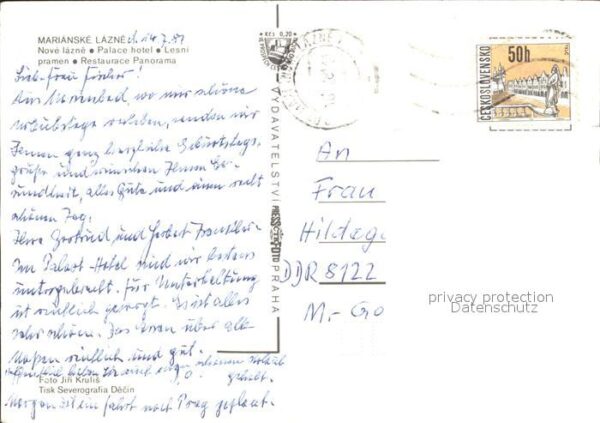 MARIÁNSKÉ LÁZNĚ d. 14.7.81
Nové lázně • Palace hotel • Lesní
pramen • Restaurace Panorama
Lieb. Frau Fischer!
Aus Marienbad, wo wir schöne
Urlaubstage verleben, senden wir
Ihnen ganz herzliche Geburtstags-
grüße und wünschen Ihnen Ge-
sundheit, alles Gute und einen recht
schönen Tag.
Ihre Gertrud und Herbert
Im Palast-Hotel sind wir bestens
untergebracht. Für Unterhaltung
ist reichlich gesorgt. Es ist alles
sehr schön. Das Essen über alle
Maßen reichlich und gut.
haben Sie auch schönen Urlaub
gehabt.
Foto Jiří Krulíš
Tisk Severografia Děčín
Morgen ist ein Fahrt nach Prag geplant.
VYDAVATELSTVÍ PRESSFOTO PRAHA
Kčs 0,20
ČESKOSLOVENSKO
50h
An
Frau
Hildeg
DDR 8122
M.-Go
privacy protection
Datenschutz